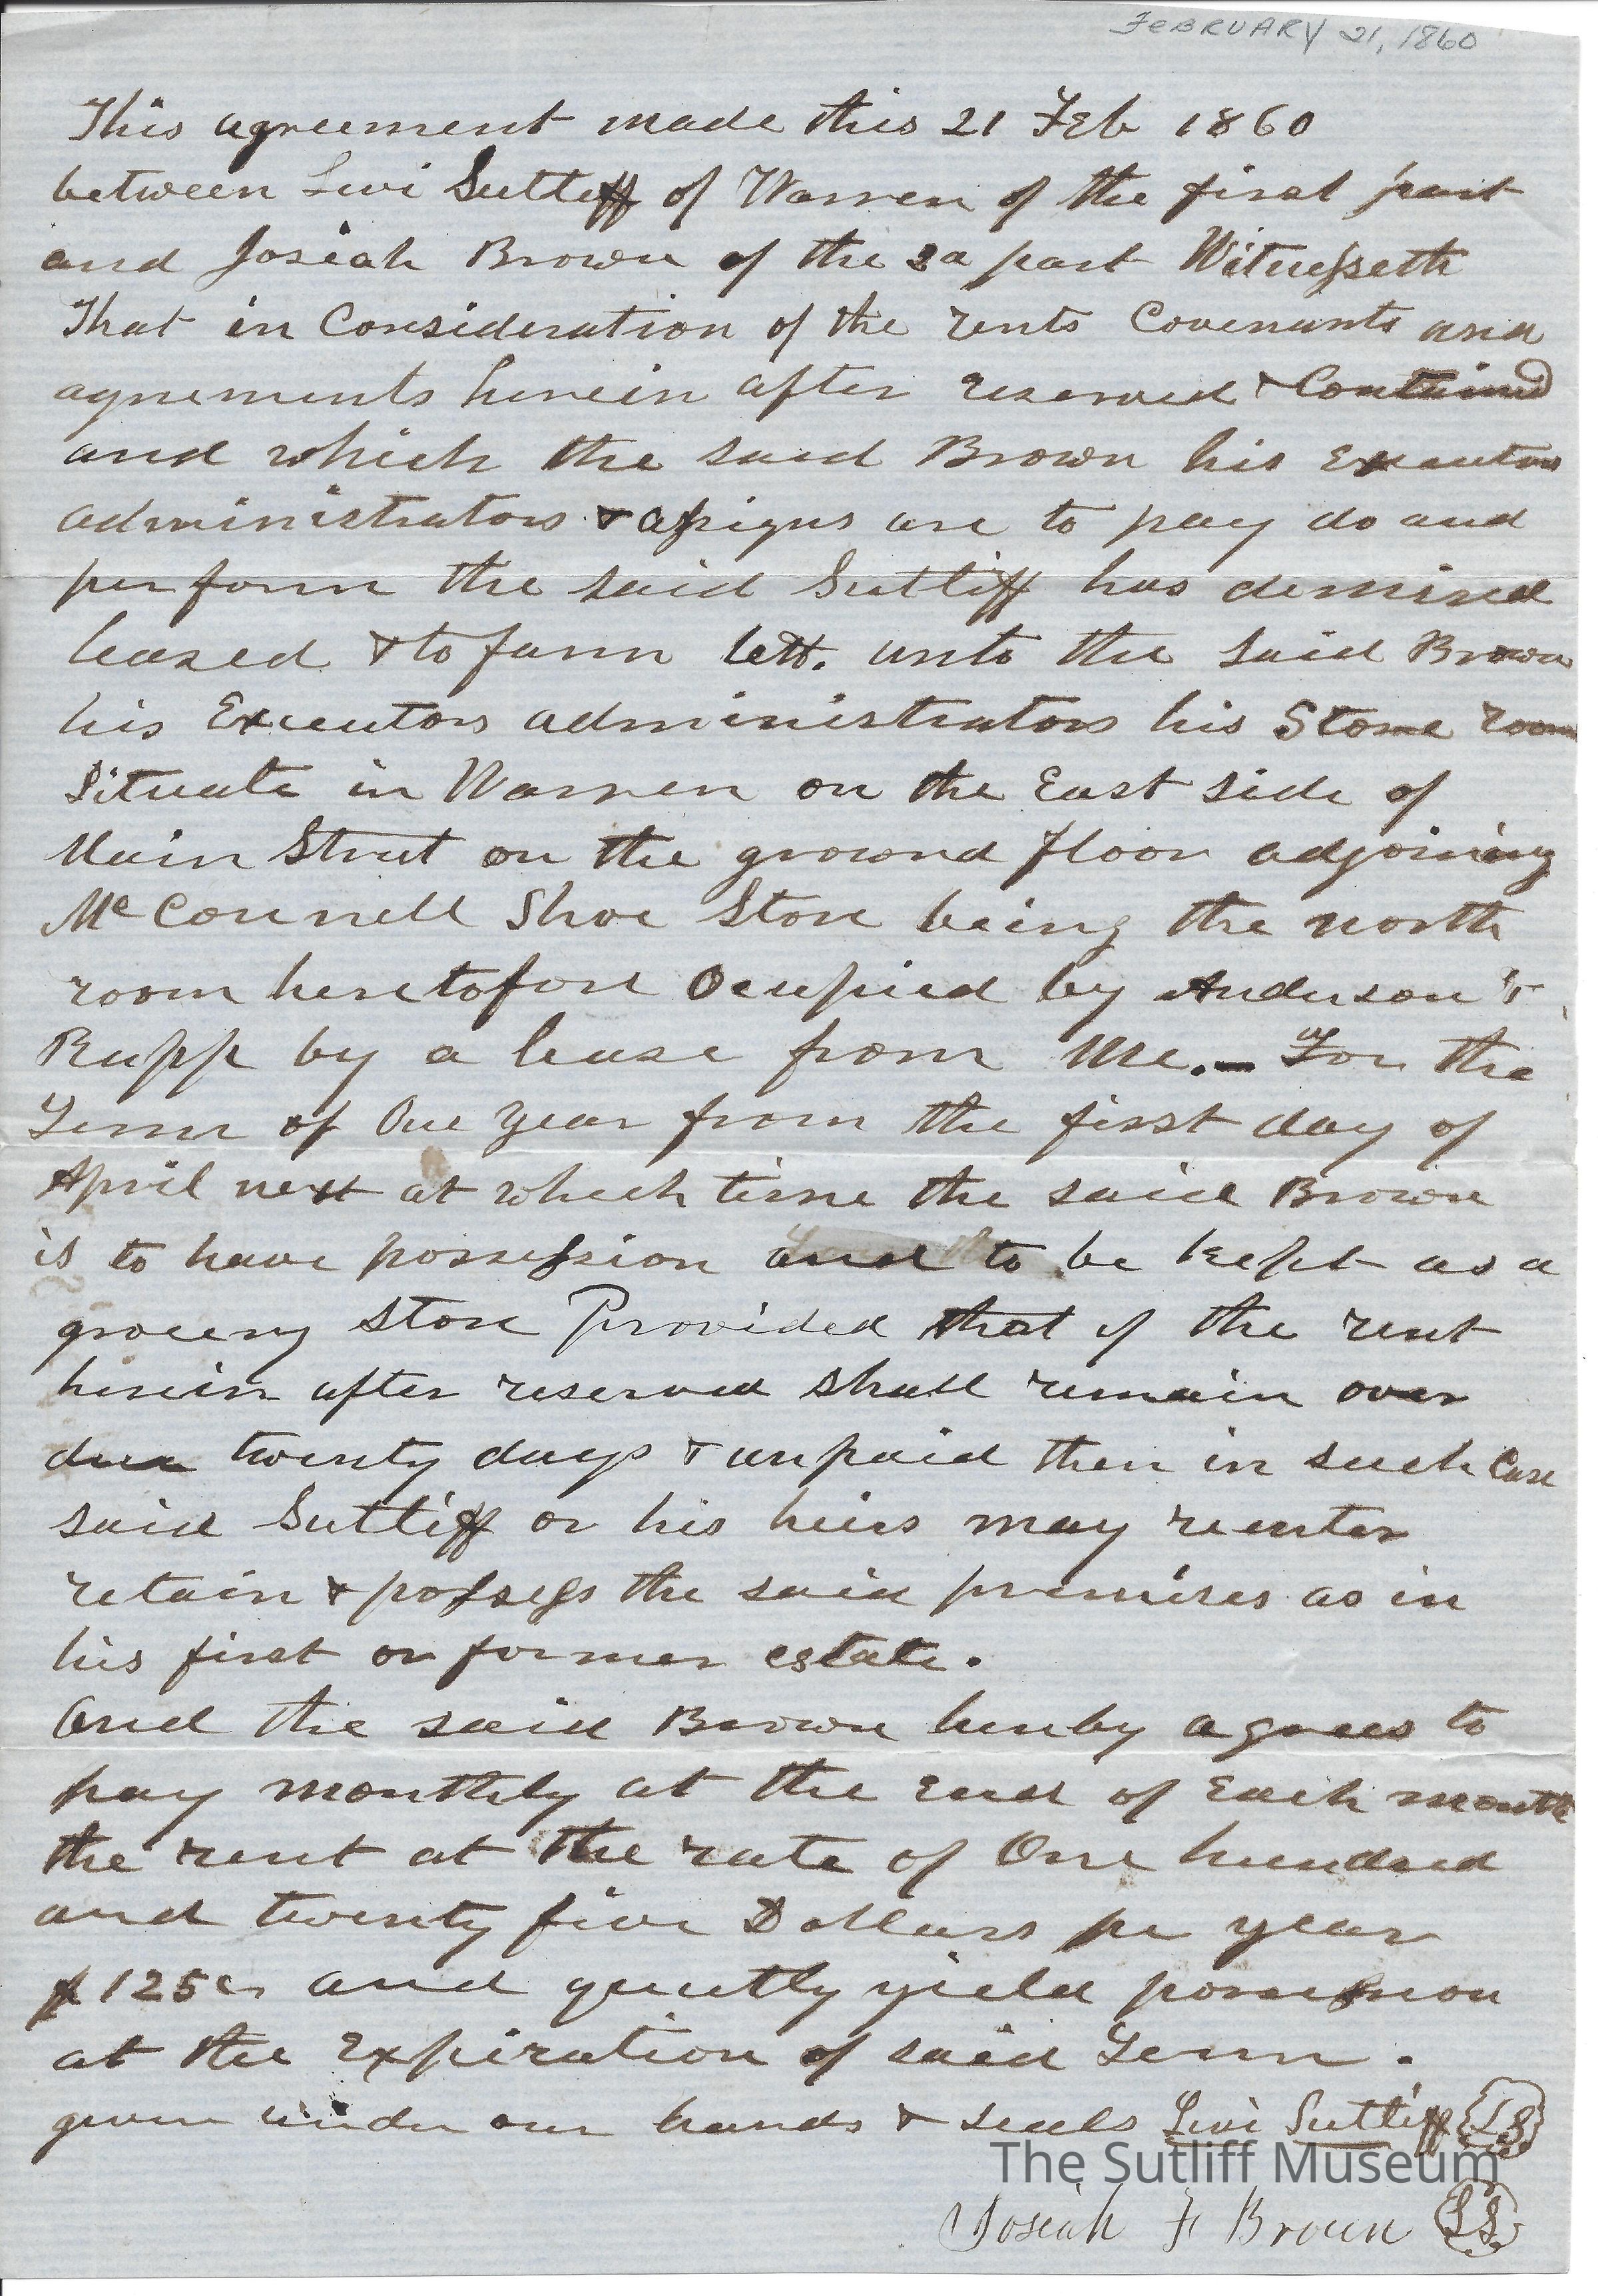 FEBRUARY 21, 1860
This agreement made this 21 Feb 1860
between Levi Sutliff of Warren of the first part
and Josiah Brown of the 2d part Witnesseth
That in Consideration of the rents Covenants and
agreements herein after reserved & Contained
and which the said Brown his Executors
administrators & assigns are to pay do and
perform the said Sutliff has demised
leased & to farm lett. unto the said Brown
his Executors administrators his Store room
Situate in Warren on the East side of
Main Street on the ground floor adjoining
McConnell Shoe Store being the north
room heretofore Ocupied by Anderson &
Rupp by a lease from Me.– For the
Term of One year from the first day of
April next at which time the said Brown
is to have possession and to be kept as a
grocery store Provided that if the rent
herein after reserved shall remain over
due twenty days & unpaid then in such Case
said Sutliff or his heirs may reenter
retain & possess the said premises as in
his first or former estate.
And the said Brown hereby agrees to
pay monthly at the end of Each month
the rent at the rate of One hundred
and twenty five Dollars pe year
$125 and quietly yield possession
at the Expiration of said Term.
given under our hands & seals Levi Sutliff {LS}
The Sutliff Museum
Josiah F Brown {LS}